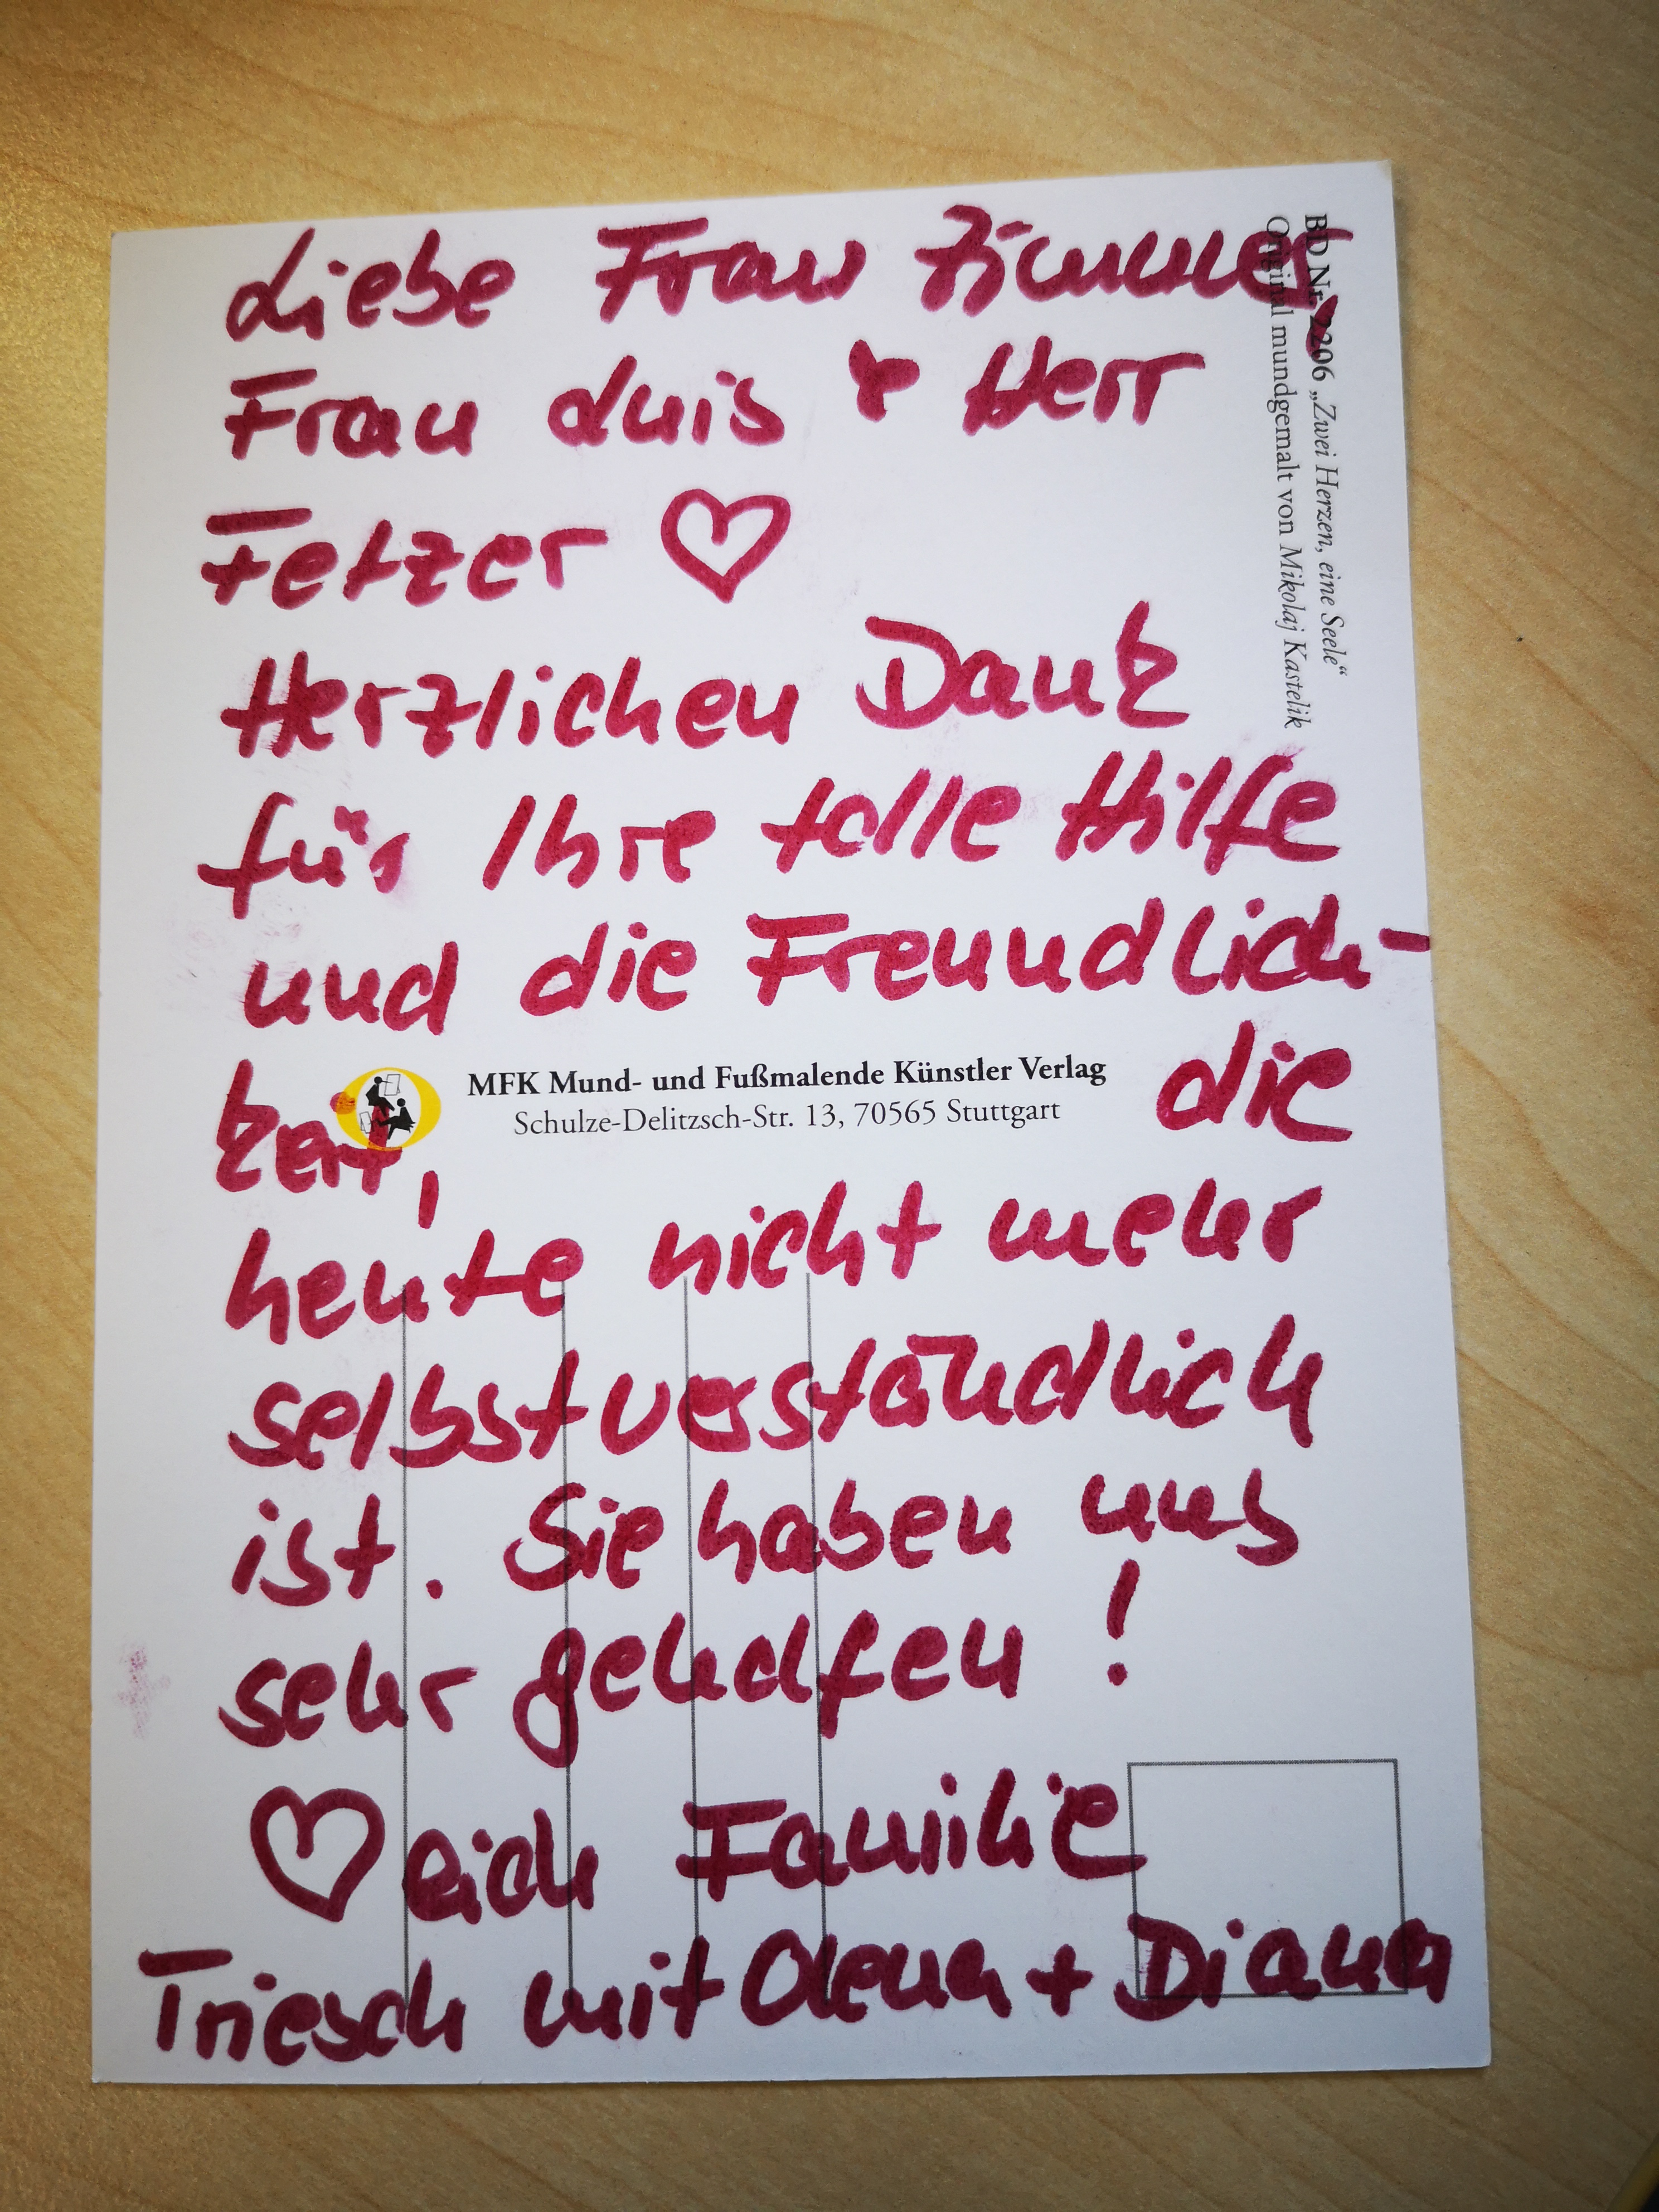 Liebe Frau Zimmer,
Frau Luis & Herr
Fetzer ♡
Herzlichen Dank
für Ihre tolle Hilfe
und die Freundlich-
keit, die
heute nicht mehr
selbstverständlich
ist. Sie haben uns
sehr geholfen!
♡ lich Familie
Triesch mit Olena + Diana
MFK Mund- und Fußmalende Künstler Verlag
Schulze-Delitzsch-Str. 13, 70565 Stuttgart
BD Nr. 2206 „Zwei Herzen, eine Seele“
Original mundgemalt von Mikolaj Kastelik